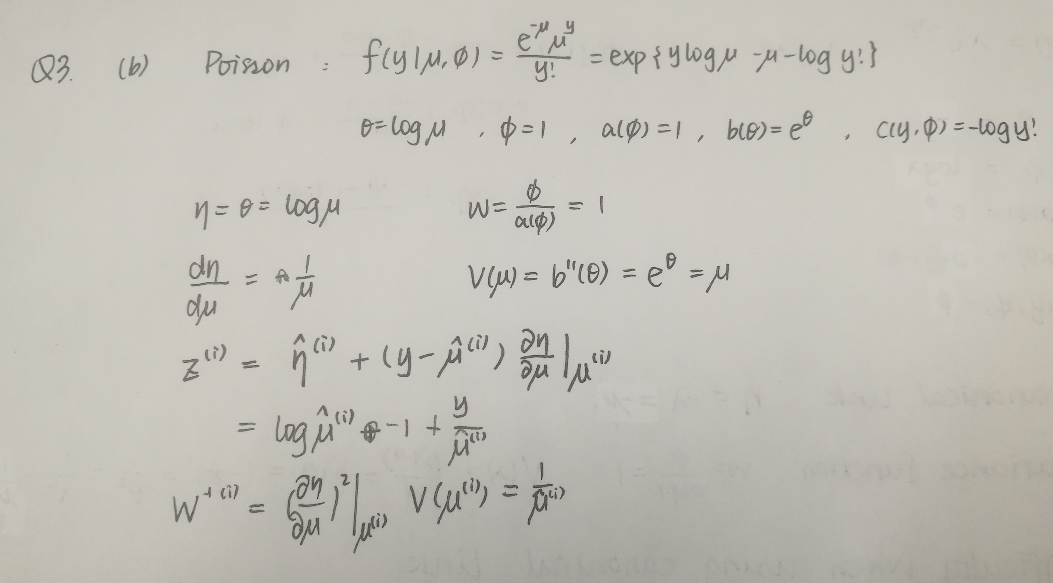 Q3. (b) Poisson : f(y|μ,φ) = e^{-μ}μ^y / y! = exp{ylogμ -μ-log y!}
θ=logμ , φ=1 , a(φ)=1 , b(θ)=e^θ , c(y,φ)=-logy!
η=θ=logμ w=φ/a(φ)=1
dη/dμ = 1/μ V(μ)=b''(θ)=e^θ=μ
z^{(i)} = η̂^{(i)} + (y-μ̂^{(i)}) ∂η/∂μ |_{μ^{(i)}}
= logμ̂^{(i)} -1 + y/μ̂^{(i)}
W^{-1(i)} = (∂η/∂μ)^2|_{μ^{(i)}} V(μ^{(i)}) = 1/μ̂^{(i)}